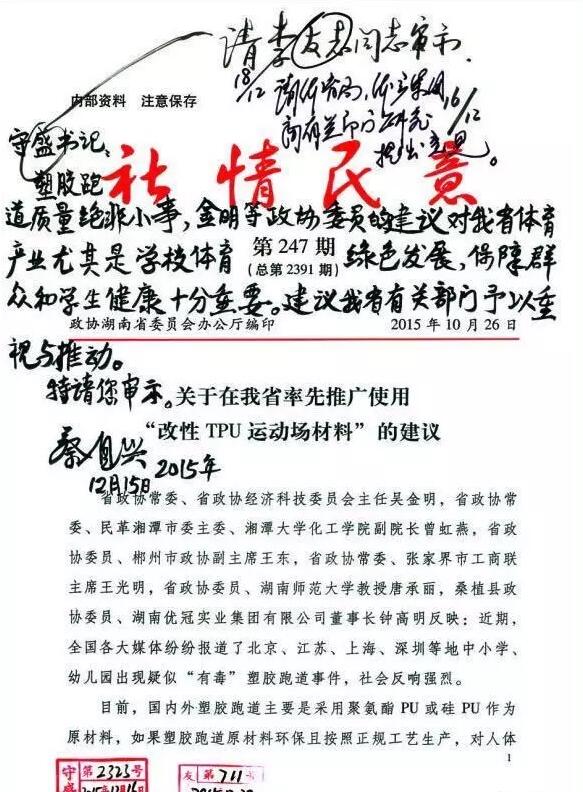 请李友志同志审示.
18/12
请体育局、体彩集团
商有关部门研究
提出意见。
16/12
内部资料 注意保存
守盛书记、
塑胶跑
社情民意
道质量绝非小事，金明等政协委员的建议对我省体育
产业尤其是学校体育
第 247 期
绿色发展，保障群
（总第 2391 期）
众和学生健康十分重要。建议我省有关部门予以重
政协湖南省委员会办公厅编印
2015 年 10 月 26 日
视与推动。
特请您审示。
关于在我省率先推广使用
“改性 TPU 运动场材料”的建议
蔡自兴
12月15日2015年
省政协常委、省政协经济科技委员会主任吴金明，省政协常
委、民革湘潭市委主委、湘潭大学化工学院副院长曾虹燕，省政
协委员、郴州市政协副主席王东，省政协常委、张家界市工商联
主席王光明，省政协委员、湖南师范大学教授唐承丽，桑植县政
协委员、湖南优冠实业集团有限公司董事长钟高明反映：近期，
全国各大媒体纷纷报道了北京、江苏、上海、深圳等地中小学、
幼儿园出现疑似“有毒”塑胶跑道事件，社会反响强烈。
目前，国内外塑胶跑道主要是采用聚氨酯 PU 或硅 PU 作为
原材料，如果塑胶跑道原材料环保且按照正规工艺生产，对人体
1
守盛
第2323号
2015年12月16日
友
第711号